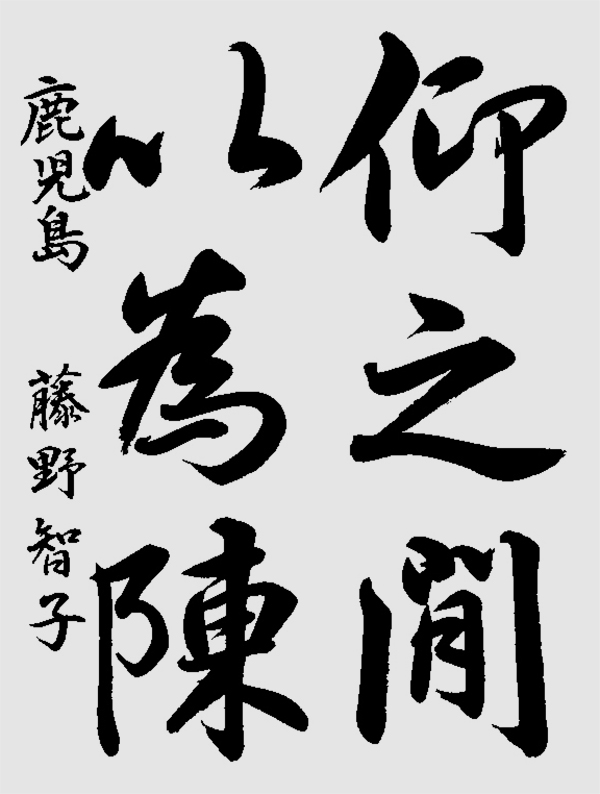 仰之間
以為陳
鹿児島 藤野智子